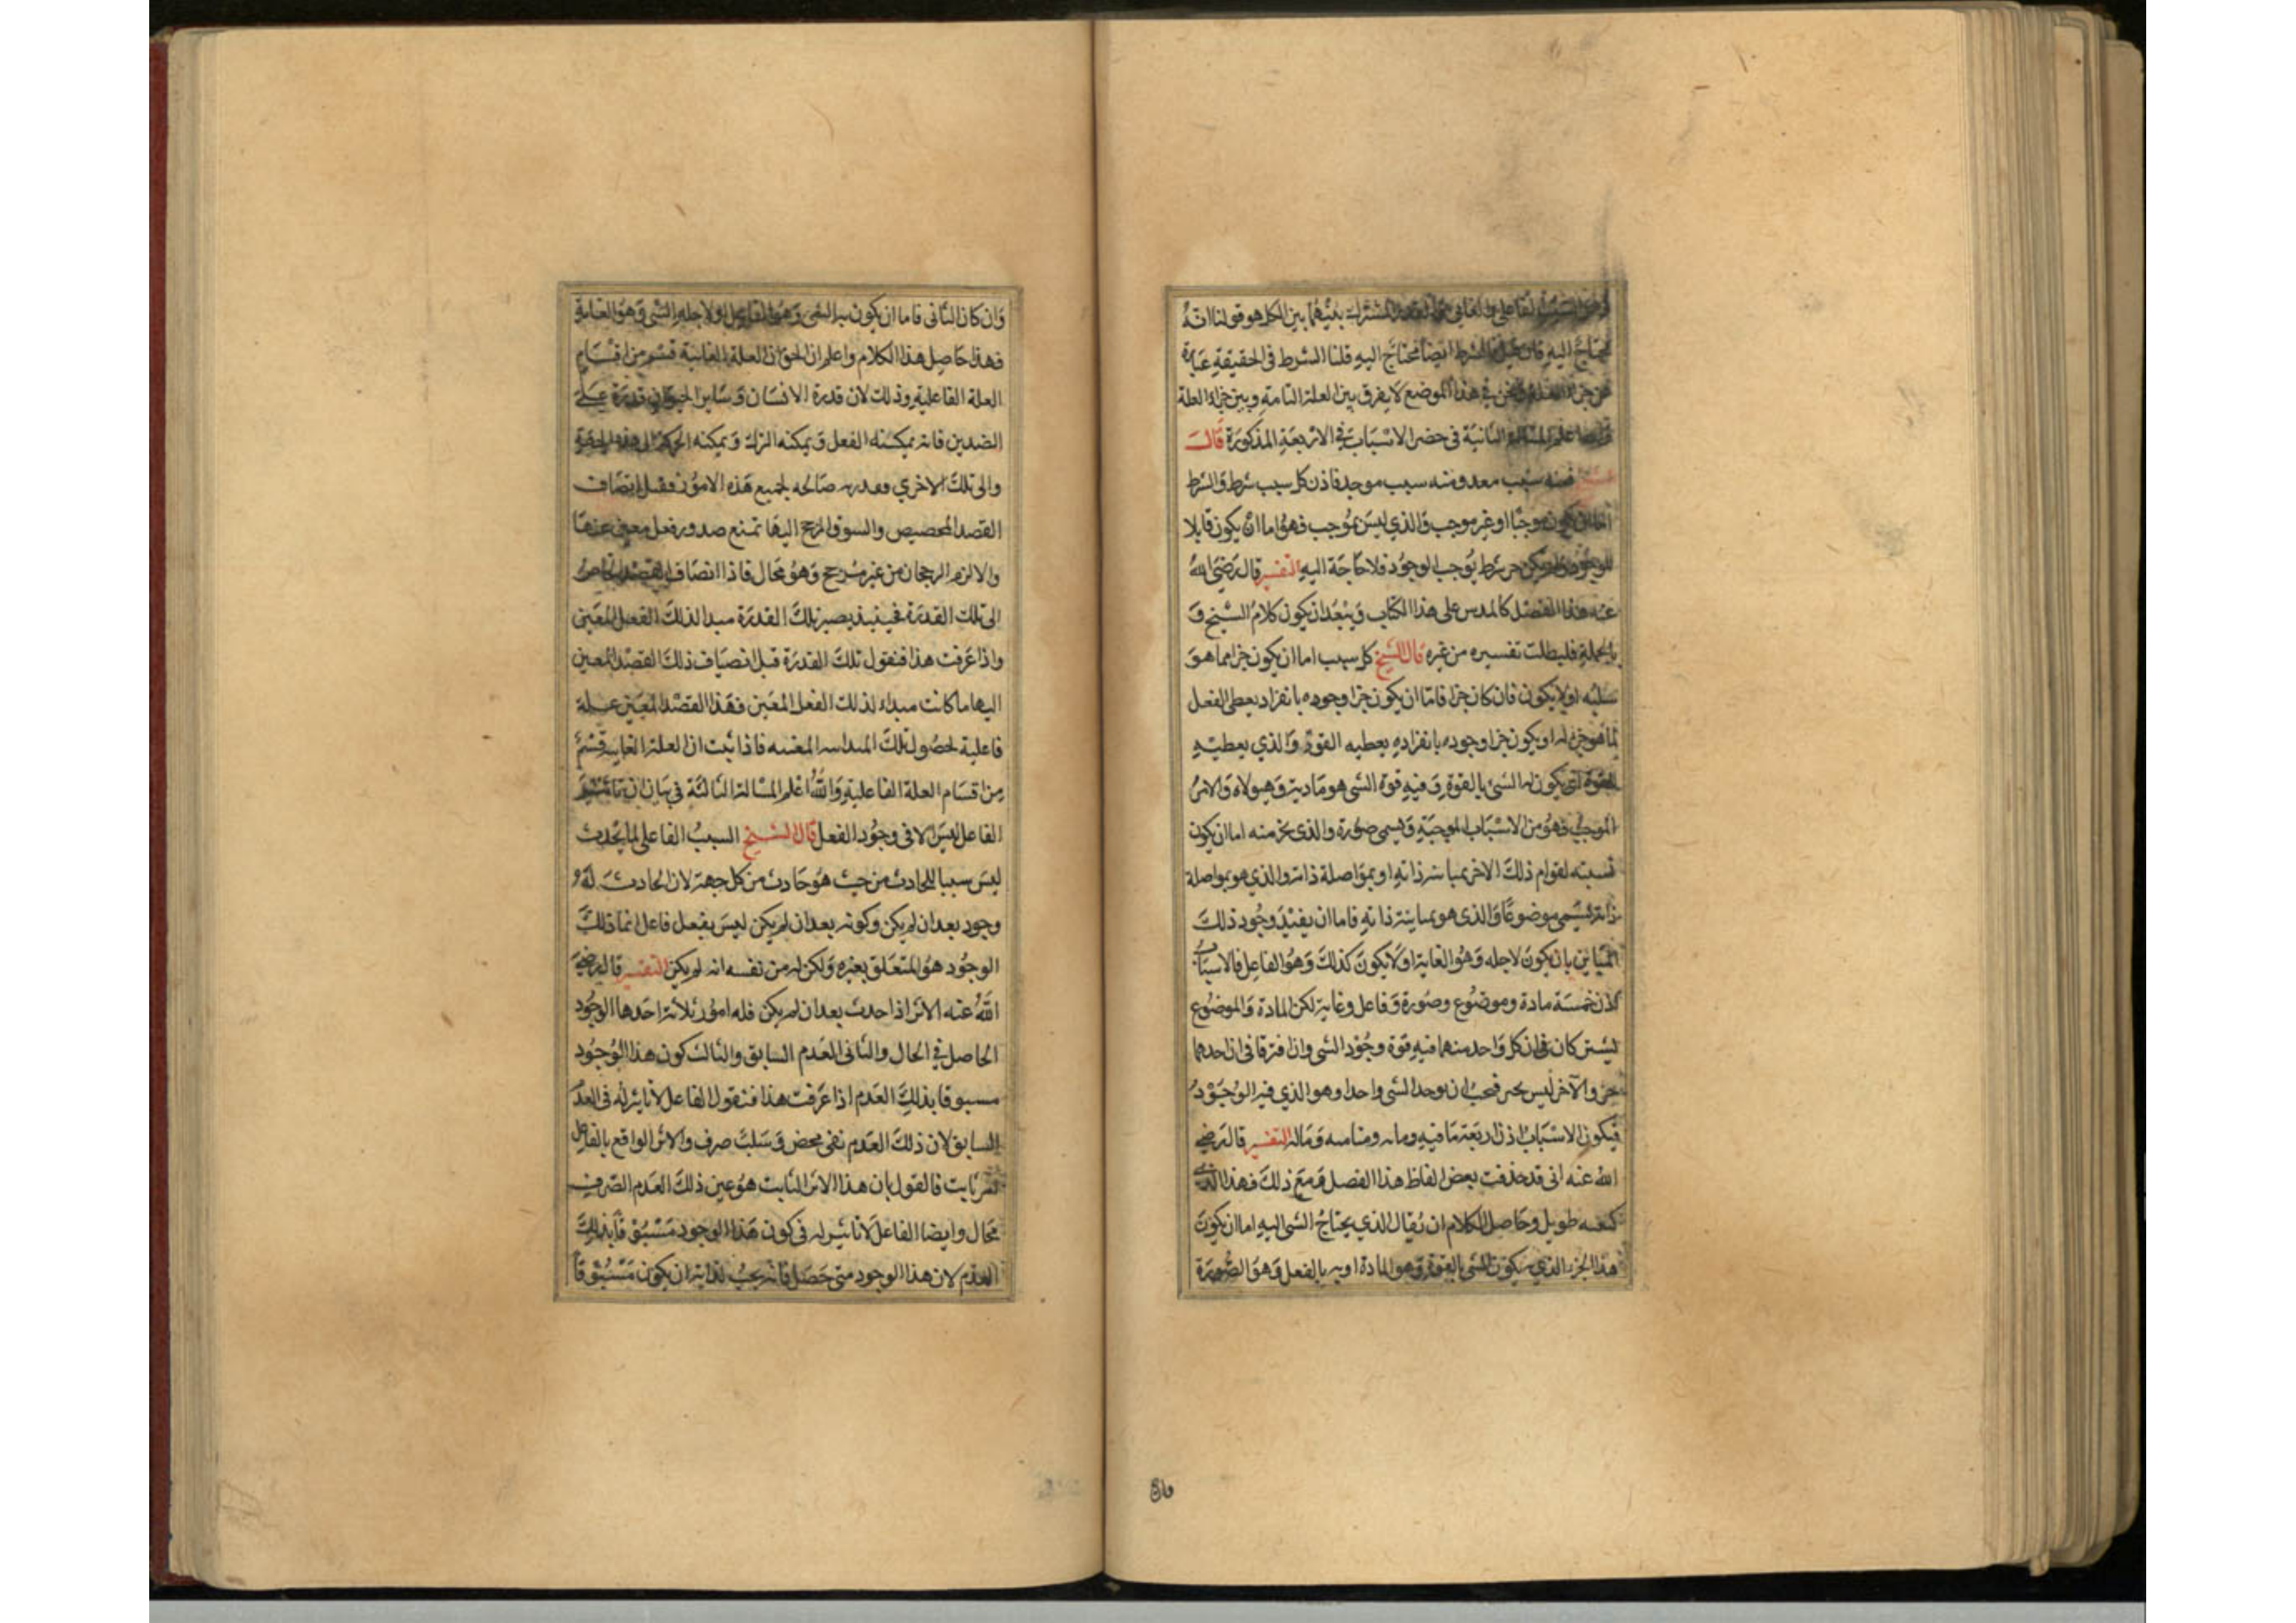 الفاعلي والغائي المشترك بينهما بين الكل هو قولنا انه
محتاج اليه فان قيل الشرط ايضا محتاج اليه قلنا الشرط في الحقيقة عبارة
عن جزء العلة ونحن في هذا الموضع لا يفرق بين العلة التامة وبين جزء العلة
المسالة الثانية في حصر الاسباب في الاربعة المذكورة قال
فمنه سبب معد ومنه سبب موجد فاذن كل سبب شرط والشرط
اما ان يكون موجبا او غير موجب والذي ليس بموجب فهو اما ان يكون قابلا
للوجود شرط يوجب الوجود فلا حاجة اليه التفسير قال رضى الله
عنه هذا الفصل كالمدس على هذا الكتاب ويبعد ان يكون كلام الشيخ و
بالجملة فليطلب تفسيره من غيره قال الشيخ كل سبب اما ان يكون جزا مما هو
سببه او لا يكون فان كان جزا فاما ان يكون جزا وجوده بانفراد يعطى الفعل
لما هو جزء له او يكون جزا وجوده بانفراده يعطيه القوة والذي يعطيه
القوة التي يكون له الشئ بالقوة وفيه قوة الشى هو مادية وهيولاه والامر
الموجب فهو من الاسباب الموجبة ويسمى صورة والذى يخرمنه اما ان يكون
نسبته لقوام ذلك الاخر بمباينته ذاته او بمواصلة ذاته والذي هو بمواصلة
ذاته يسمى موضوعا والذى هو بمباينة ذاته فاما ان يفيد وجود ذلك
المباين بان يكون لاجله وهو الغاية او لا يكون كذلك وهو الفاعل فالاسباب
اذن خمسة مادة وموضوع وصورة وفاعل وغاية لكن المادة والموضوع
يشتركان في ان كل واحد منهما فيه قوة وجود الشى وان افترقا في ان احدهما
جزء والآخر ليس بجزء فيجب ان يوحد الشى واحدا وهو الذي فيه الوجود
فيكون الاسباب اذن اربعة ما فيه وما به وما منه وما له التفسير قال رضى
الله عنه انى قد حذفت بعض الفاظ هذا الفصل ومع ذلك فهذا الذى
كتبته طويل وحاصل الكلام ان يقال الذي يحتاج الشى اليه اما ان يكون
هذا الجزء الذي يكون الشى بالقوة وهو المادة او به بالفعل وهو الصورة
وان
وان كان الثانى فاما ان يكون به الشى وهو الفاعل او لاجله الشى وهو الغاية
فهذا حاصل هذا الكلام واعلم ان الحق ان العلة الغايية قسم من اقسام
العلة الفاعلية وذلك لان قدرة الانسان وساير الحيوان قدرة على
الضدين فانه يمكنه الفعل ويمكنه الترك ويمكنه الحركة الى هذه الجهة
والى تلك الاخري وقدرته صالحه لجميع هذه الامور فقبل انضياف
القصد المخصص والشوق المرجح اليها تمتنع صدور فعل معين عنها
والا لزم الرجحان من غير مرجح وهو محال فاذا انضاف القصد الجاصر
الى تلك القدرة فحينيذ يصير تلك القدرة مبدا لذلك الفعل المعين
واذا عرفت هذا فنقول تلك القدرة قبل انضياف ذلك القصد المعين
اليها ما كانت مبداء لذلك الفعل المعين فهذا القصد المعين علة
فاعلية لحصول تلك المبدائية المعينه فاذا ثبت ان العلة الغايية قسم
من اقسام العلة الفاعلية والله اعلم المسالة الثالثة في بيان ان تاثير
الفاعل ليس الا فى وجود الفعل قال الشيخ السبب الفاعلى لما يحدث
ليس سببا للحادث من حيث هو حادث من كل جهة لان الحادث له
وجود بعد ان لم يكن وكونه بعد ان لم يكن ليس بفعل فاعل انما ذلك
الوجود هو المتعلق بغيره ولكن له من نفسه انه لم يكن التفسير قال رضى
الله عنه الاثر اذا حدث بعد ان لم يكن فله امور ثلاثة احدها الوجود
الحاصل في الحال والثانى العدم السابق والثالث كون هذا الوجود
مسبوقا بذلك العدم اذا عرفت هذا فنقول الفاعل لا تاثير له فى العدم
السابق لان ذلك العدم نفى محض وسلب صرف والاثر الواقع بالفاعل
ثابت فالقول بان هذا الاثر الثابت هو عين ذلك العدم الصرف
محال وايضا الفاعل لا تاثير له فى كون هذا الوجود مسبوقا بذلك
العدم لان هذا الوجود متى حصل فانه يجب لذاته ان يكون مسبوقا